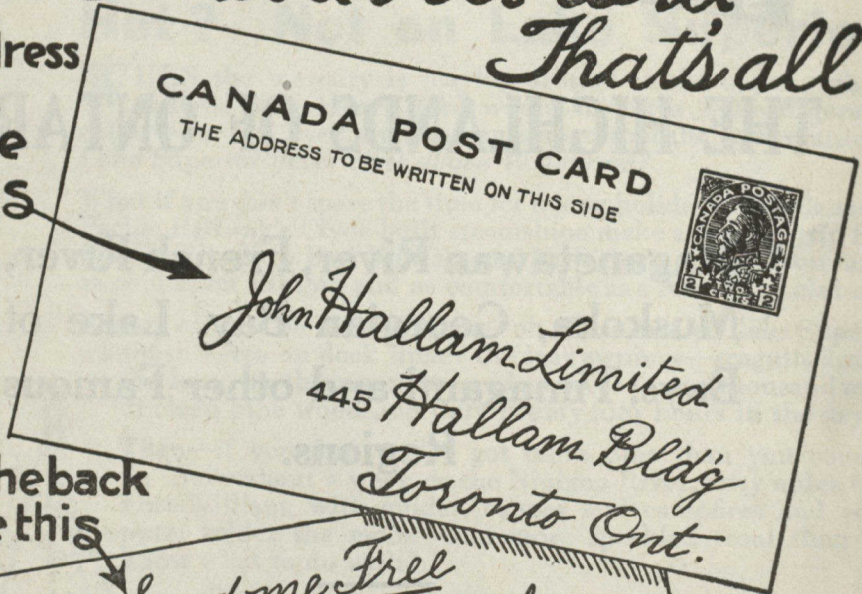 That's all
CANADA POST CARD
THE ADDRESS TO BE WRITTEN ON THIS SIDE
CANADA POSTAGE
2 TWO CENTS 2
John Hallam Limited
445 Hallam Bldg
Toronto Ont.
back
this
Free